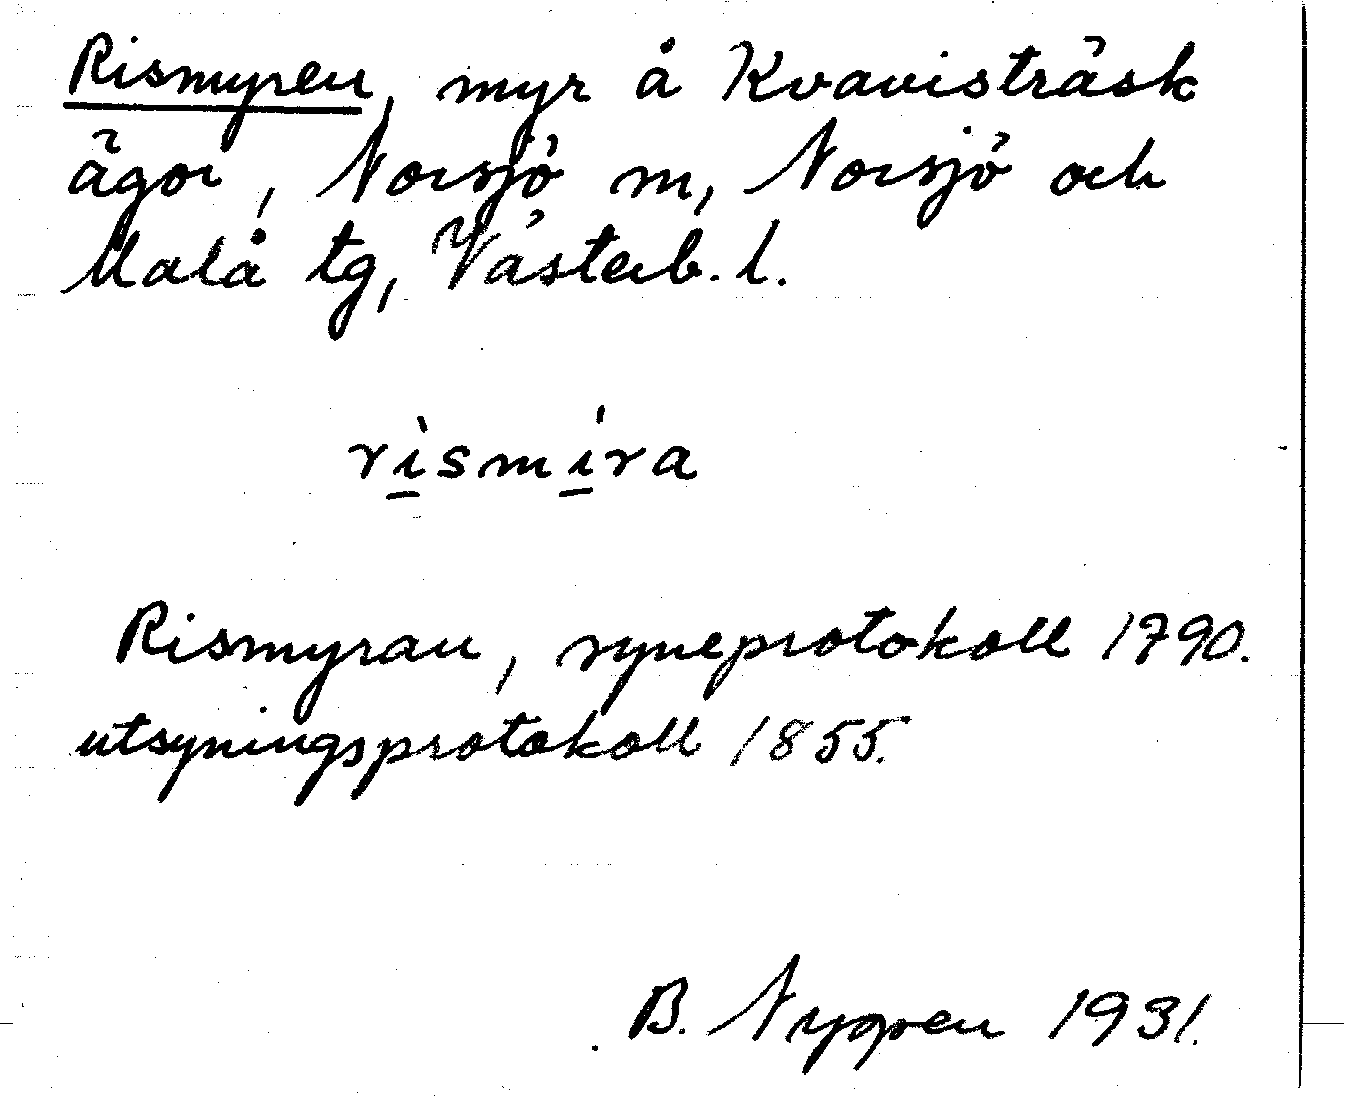 Rismyren, myr å Kvavisträsk
ägor, Norsjö m, Norsjö och
Malå tg, Västerb. l.
rìsmíra
Rismyran, syneprotokoll 1790.
utsyningsprotokoll 1855.
B. Nygren 1931.